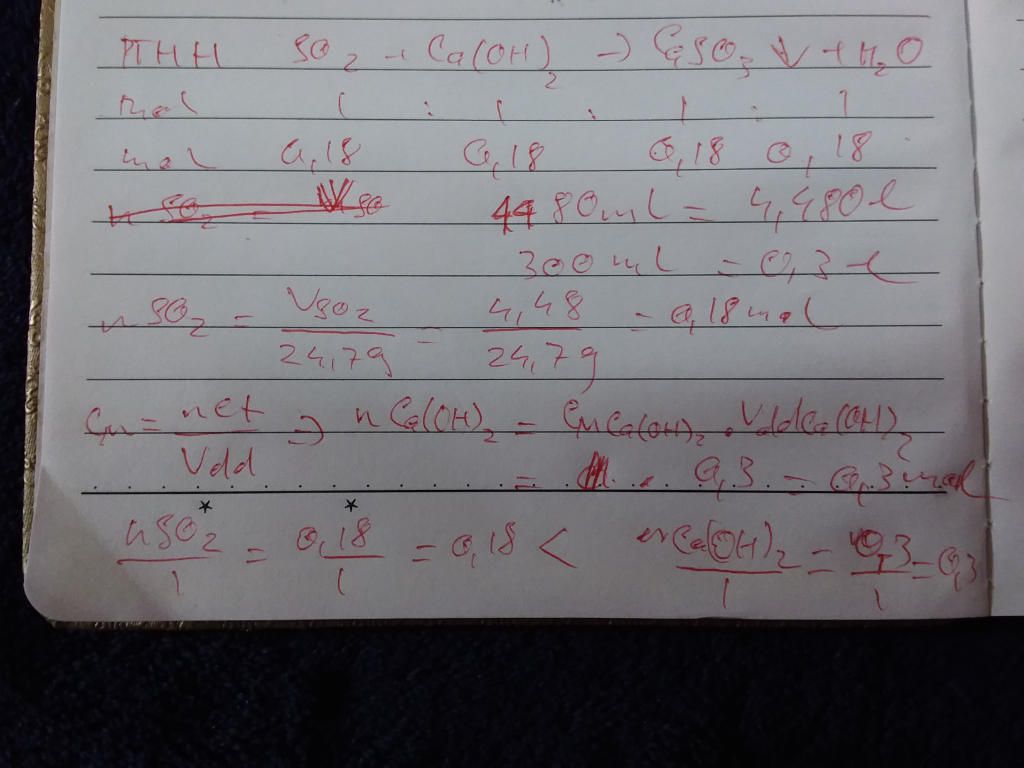 PTHH SO2 + Ca(OH)2 → CaSO3 ↓ + H2O
mol 1 : 1 : 1 : 1
mol 0,18 0,18 0,18 0,18
4480ml = 4,480l
300ml = 0,3l
nSO2 = VSO2/24,79 = 4,48/24,79 = 0,18mol
CM = nct/Vdd ⇒ nCa(OH)2 = CMCa(OH)2 . VddCa(OH)2
= . 0,3 = 0,3mol
nSO2/1 = 0,18/1 = 0,18 < nCa(OH)2/1 = 0,3/1 = 0,3